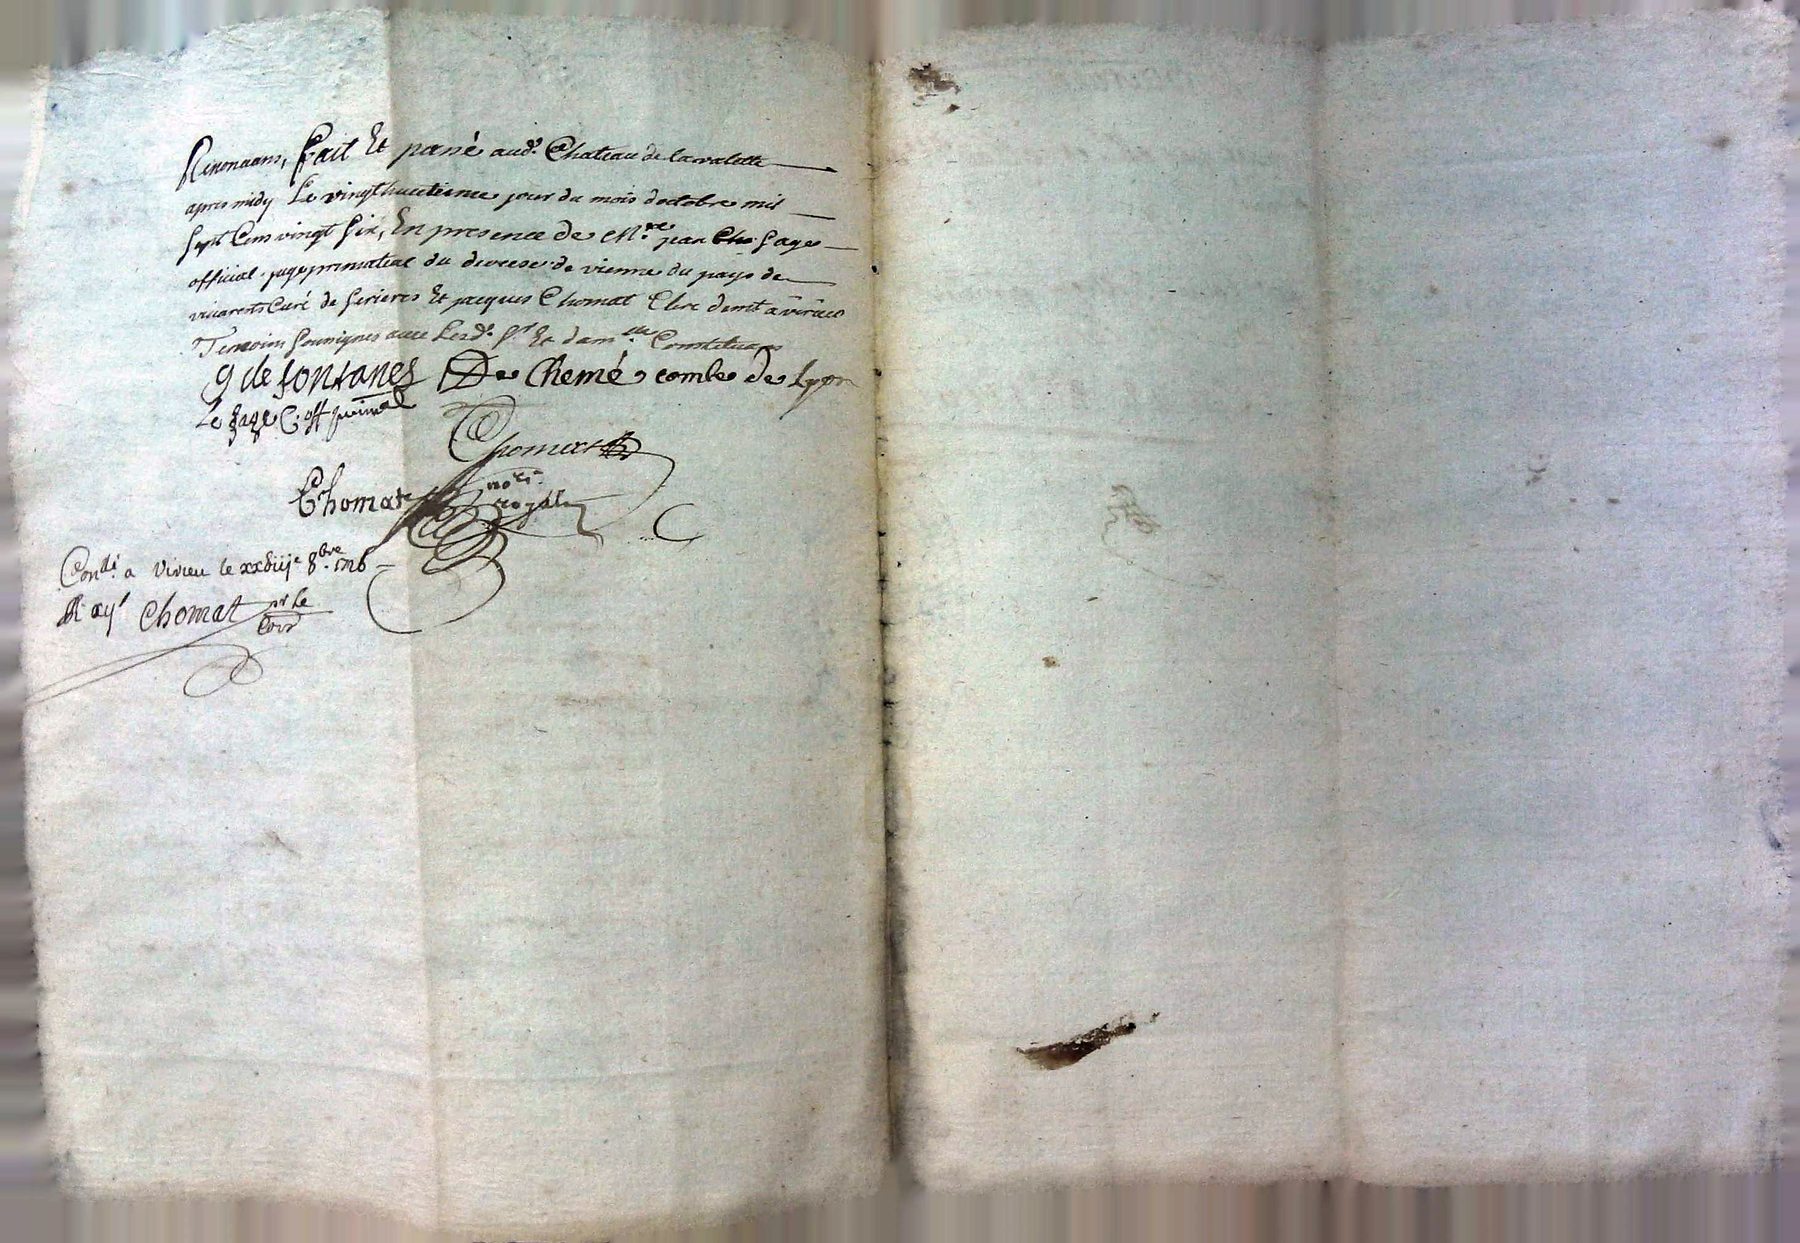 Renonceans, fait Et passé aud.t Chateau de lavalette
apres midy Le vingthuictiesme jour du mois doctobre mil
Sept Cens vingt Six, En presence de M.re jean Sage
official juge primatial du diocese de vienne du pays de
vivarets Curé de serieres Et jacques Chomat Clerc demt a virieu
Temoins Soussignes avec Lesd.t S.r Et dam.lle Constituans
g de fontanes De Chemé comte de Lyon
Le sage C. off primal
Chomat
Chomat no.re royal
Con.lé a virieu le xxviije 8.bre 1726
R ay.t Chomat